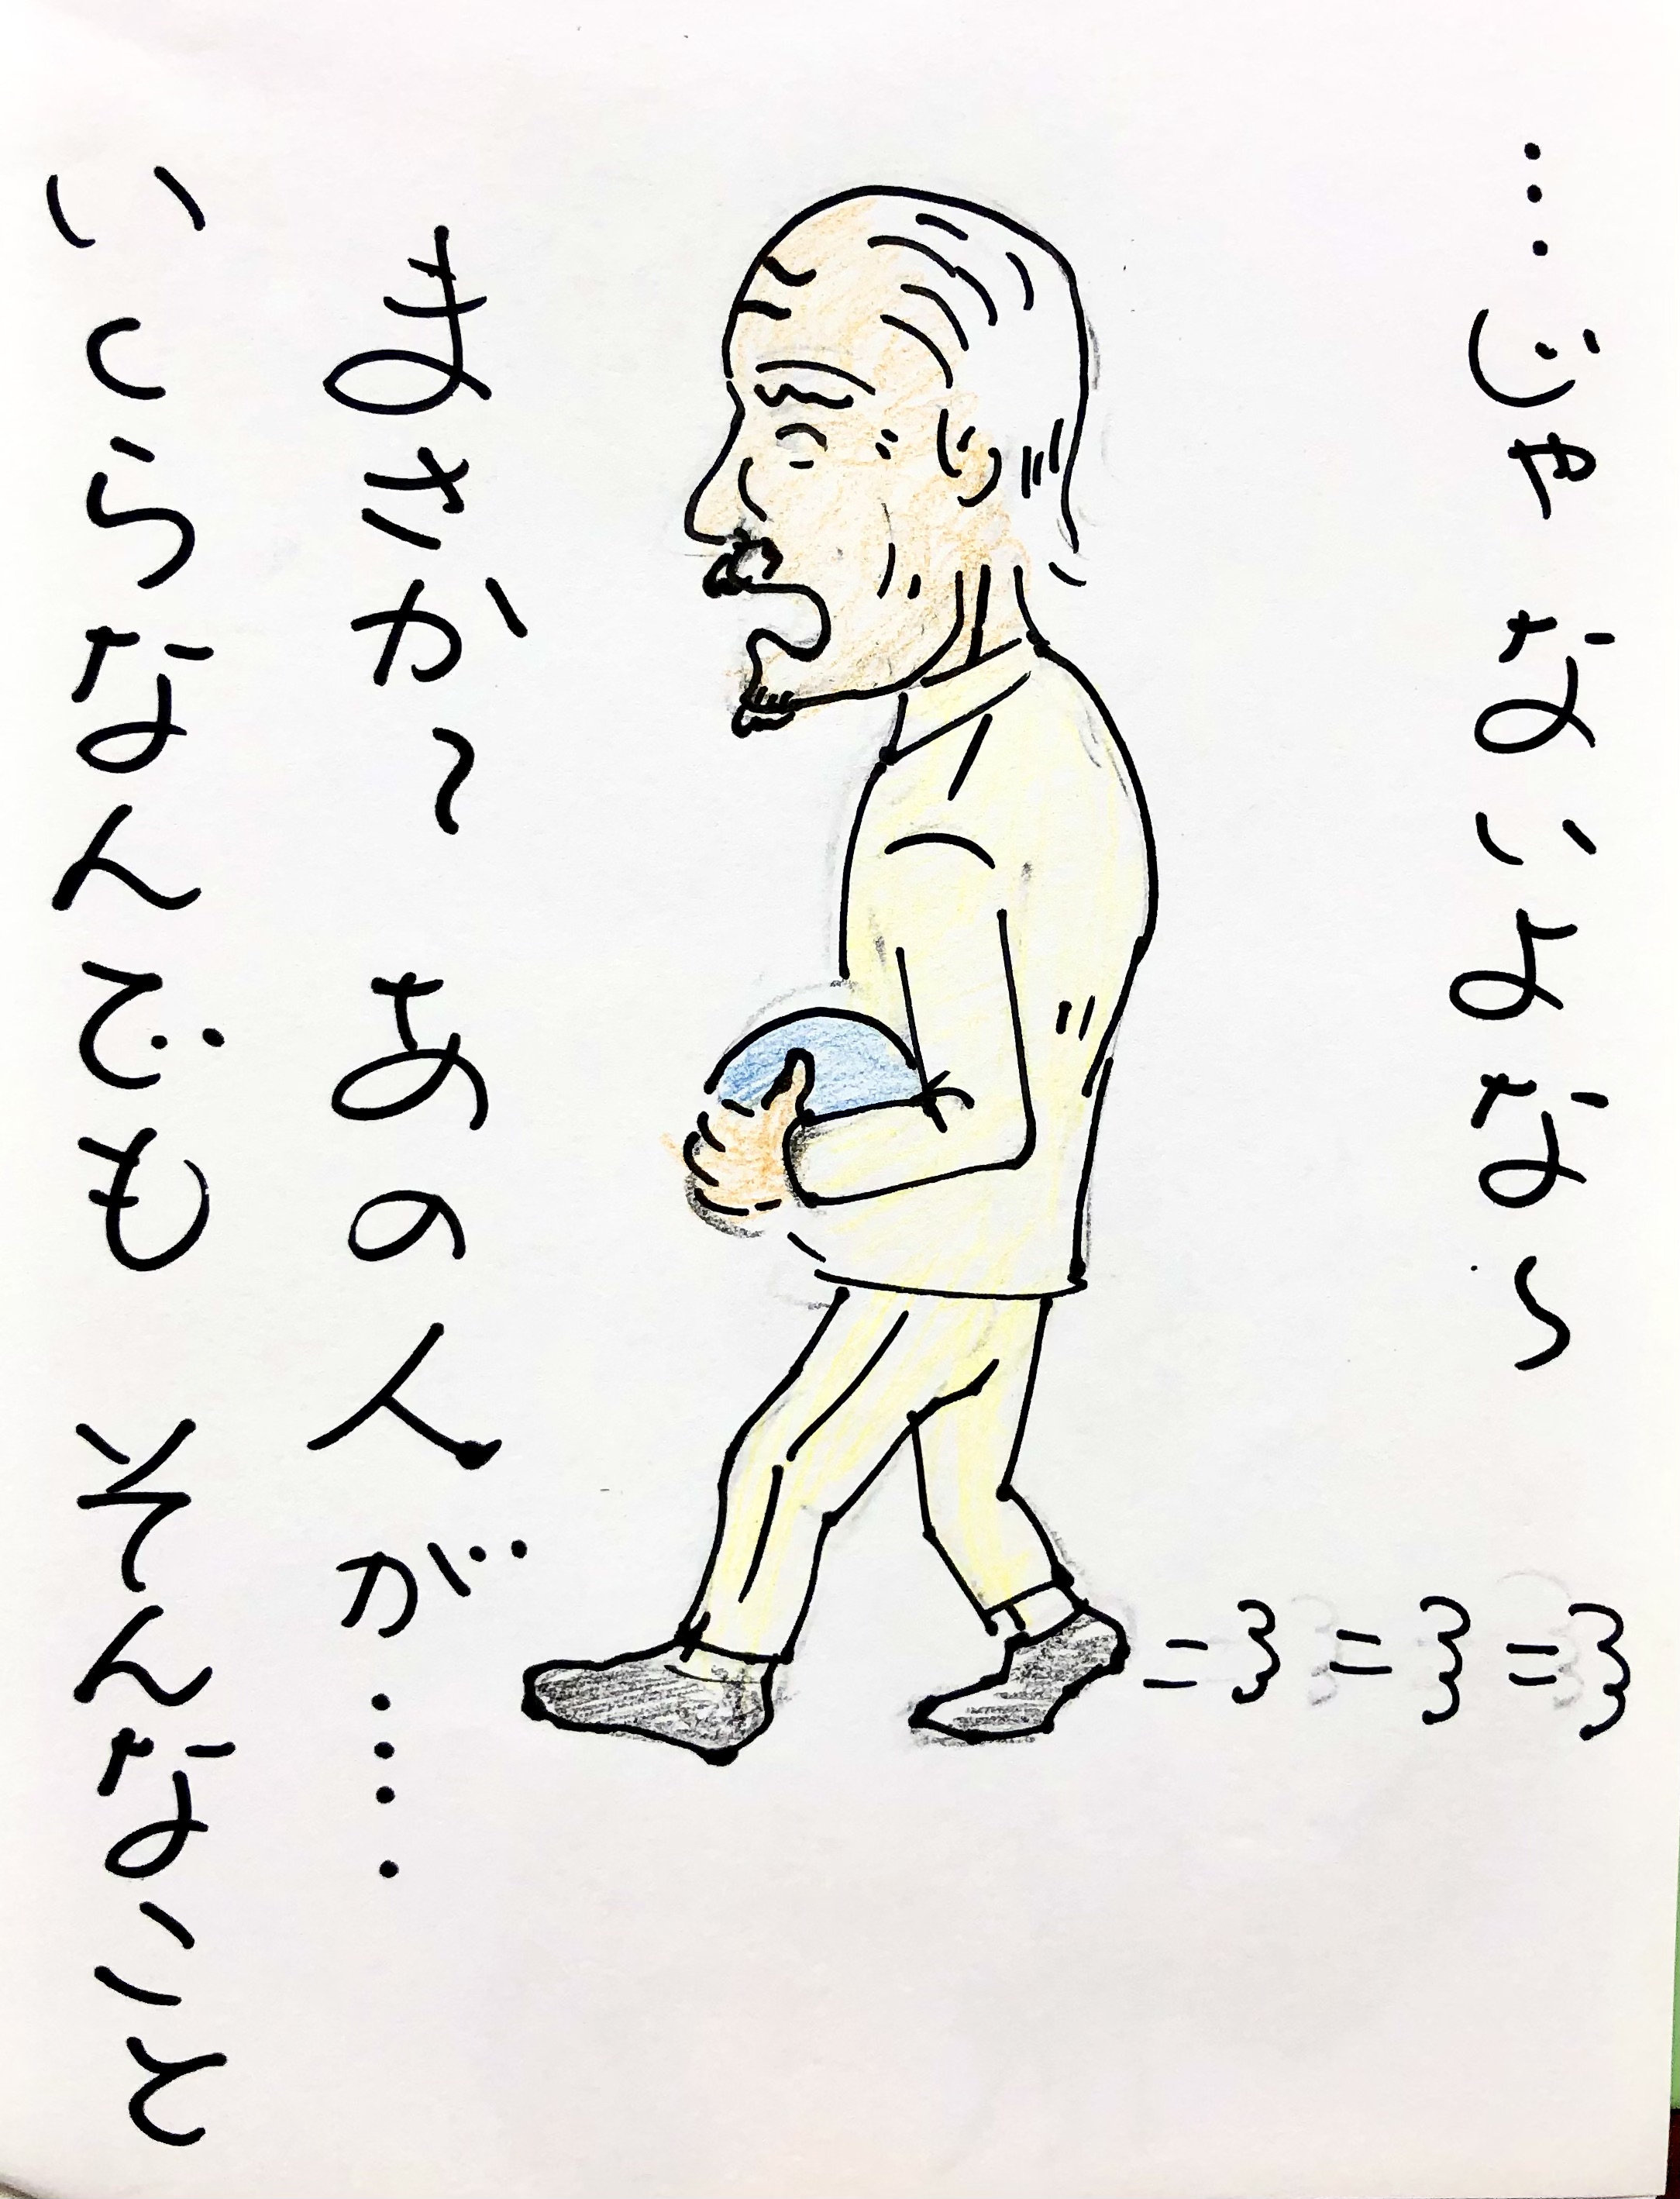 …じゃ ないよな〜
まさか〜 あの人が‥‥
いくらなんでも そんなこと